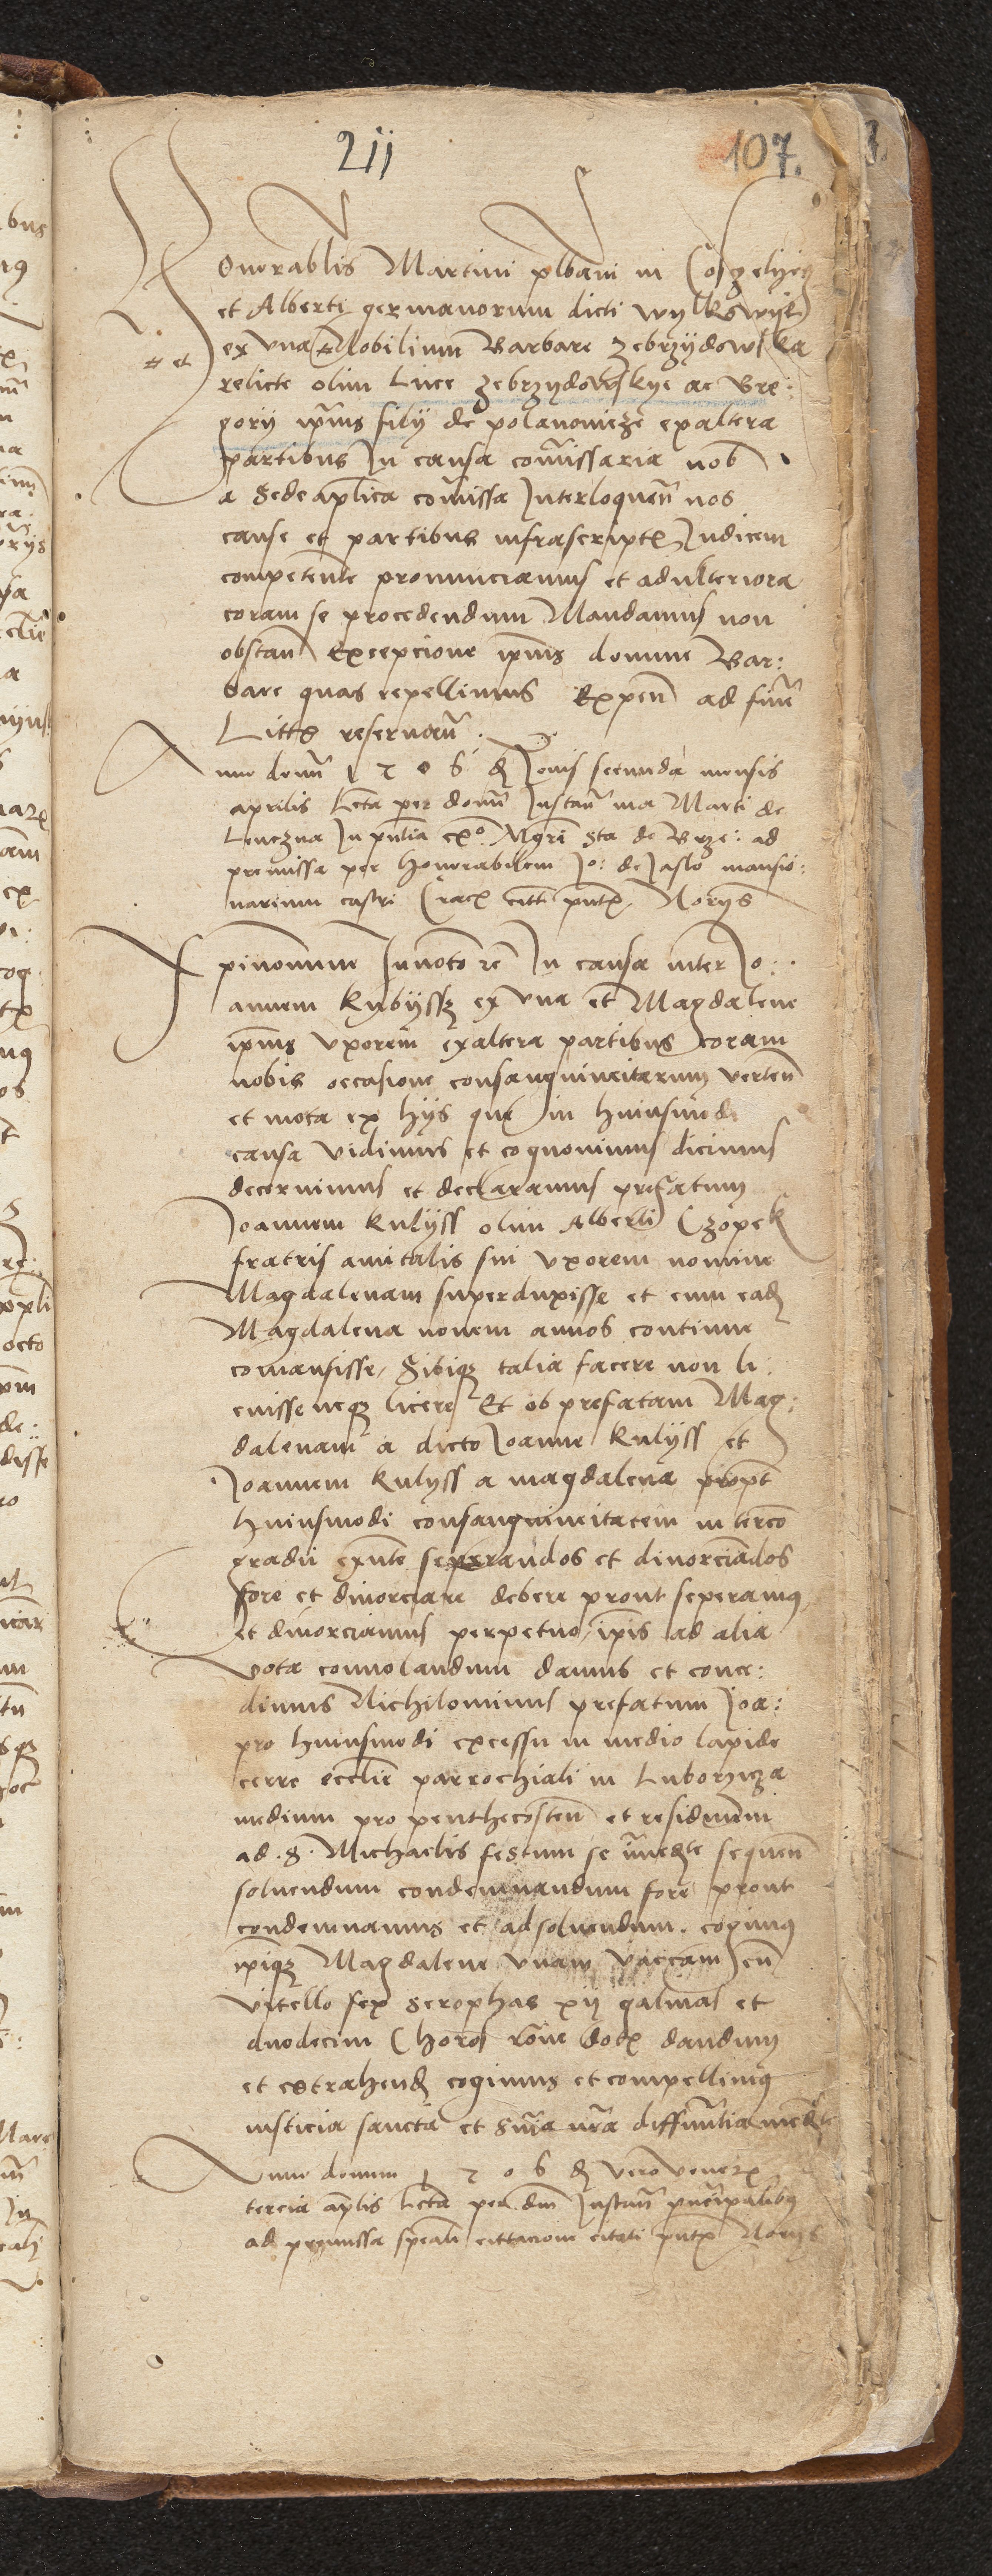 211 107.
Honorablis Martini plbani in
et Alberti germanorum dicti
ex vna # Nobilium Barbare zebrzydowska
# et
relicte olim Luce zebrzydowskye ac Gre:
gorij ipius filij de polanowicze exaltera
partibus In causa comissaria nob
a Sede aplica comissa Interloquen nos
cause et partibus infrascriptis Iudicem
competente pronunciamus et ad ulteriora
coram se procedendum Mandamus non
obstan Excepcione ipius domine Bar:
bare quas repellimus Expen ad fine
Littis reservan.
Anno domi 1506 d Iovis secunda mensis
aprilis Lcta per domi Instan ma Marti de
Lenczna In pntia Mgri Sta de ad
premissa per Honorabilem Jo: de Jaslo mansio:
narium castri Crac citt pnt. Norijs
Xpi nomine Inuocato In causa inter Jo:
annem Kulyssz ex vna et Magdalene
ipius vxorem exaltera partibus coram
nobis occasione consanguineitatum verten
et mota ex hijs que in huiusmodi
causa vidimus et cognovimus dicimus
decernimus et declaramus prefatum
Joannem Kulijss olim Alberti Czopek
fratris amitalis sui vxorem nomine
Magdalenam superduxisse et cum ead
Magdalena novem annos continue
comansisse, Sibiq talia facere non li:
cuisse neq licere Et ob prefatam Mag:
dalenam a dicto Joanne Kulijss et
Joannem Kulyss a magdalena propt
huiusmodi consanguineitatem in tercio
gradu exnte seperandos et divorciados
fore et divorciare debere prout seperamus
et divorciamus perpetuo, ipis ad alia
vota convolandum damus et conce:
dimus Nichilominus prefatum Joa:
pro huiusmodi excessu in medio lapide
cerre ecclie parrochiali in Luborzicza
medium pro penthecosten et residuum
ad .S. Michaelis festum se imediate sequen
solvendum condemnandum fore prout
condemnamus et ad solvendum cogimus
ipiq Magdalene vnam vaccam cu
vitello sex scrophas xij galinas et
duodecim Choros rone dotis dandum
et extrahend cogimus et compellimus
iusticia sancta et Snia nra diffinitia mediate
Anno domini 1506 d vero veneris
tercia aplis Lcta per dm Instan principalibus
ad premissa speali cittacione citati pnt. Norijs